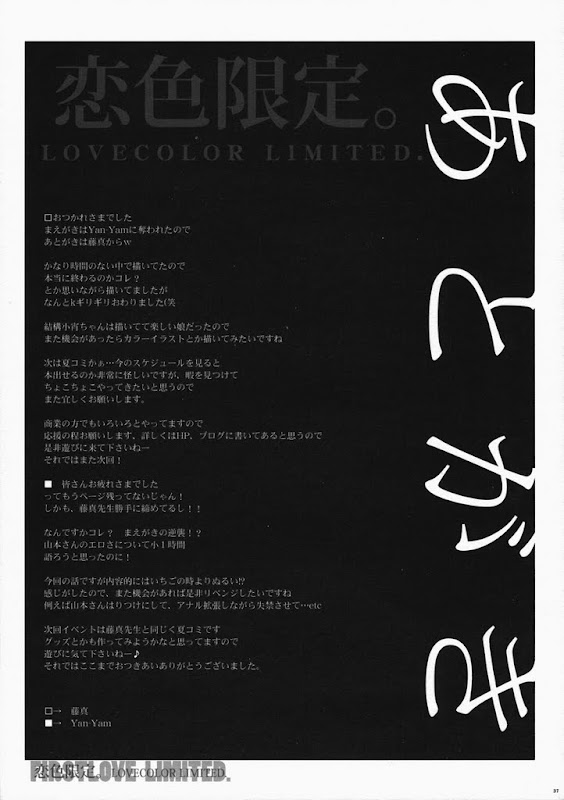 恋色限定。
LOVECOLOR LIMITED.
あとがき
□おつかれさまでした
まえがきはYan-Yamに奪われたので
あとがきは藤真からw
かなり時間のない中で描いてたので
本当に終わるのかコレ？
とか思いながら描いてましたが
なんとkギリギリおわりました(笑
結構小宵ちゃんは描いてて楽しい娘だったので
また機会があったらカラーイラストとか描いてみたいですね
次は夏コミかぁ…今のスケジュールを見ると
本出せるのか非常に怪しいですが、暇を見つけて
ちょこちょこやってきたいと思うので
また宜しくお願いします。
商業の方でもいろいろとやってますので
応援の程お願いします、詳しくはHP、ブログに書いてあると思うので
是非遊びに来て下さいねー
それではまた次回！
■　皆さんお疲れさまでした
ってもうページ残ってないじゃん！
しかも、藤真先生勝手に締めてるし！！
なんですかコレ？　まえがきの逆襲！？
次回イベントは藤真先生と同じく夏コミです
グッズとかも作ってみようかなと思ってますので
遊びに気て下さいねー♪
それではここまでおつきあいありがとうございました。
□→　藤真
■→　Yan-Yam
FIRSTLOVE LIMITED.
恋色限定。　LOVECOLOR LIMITED.
37